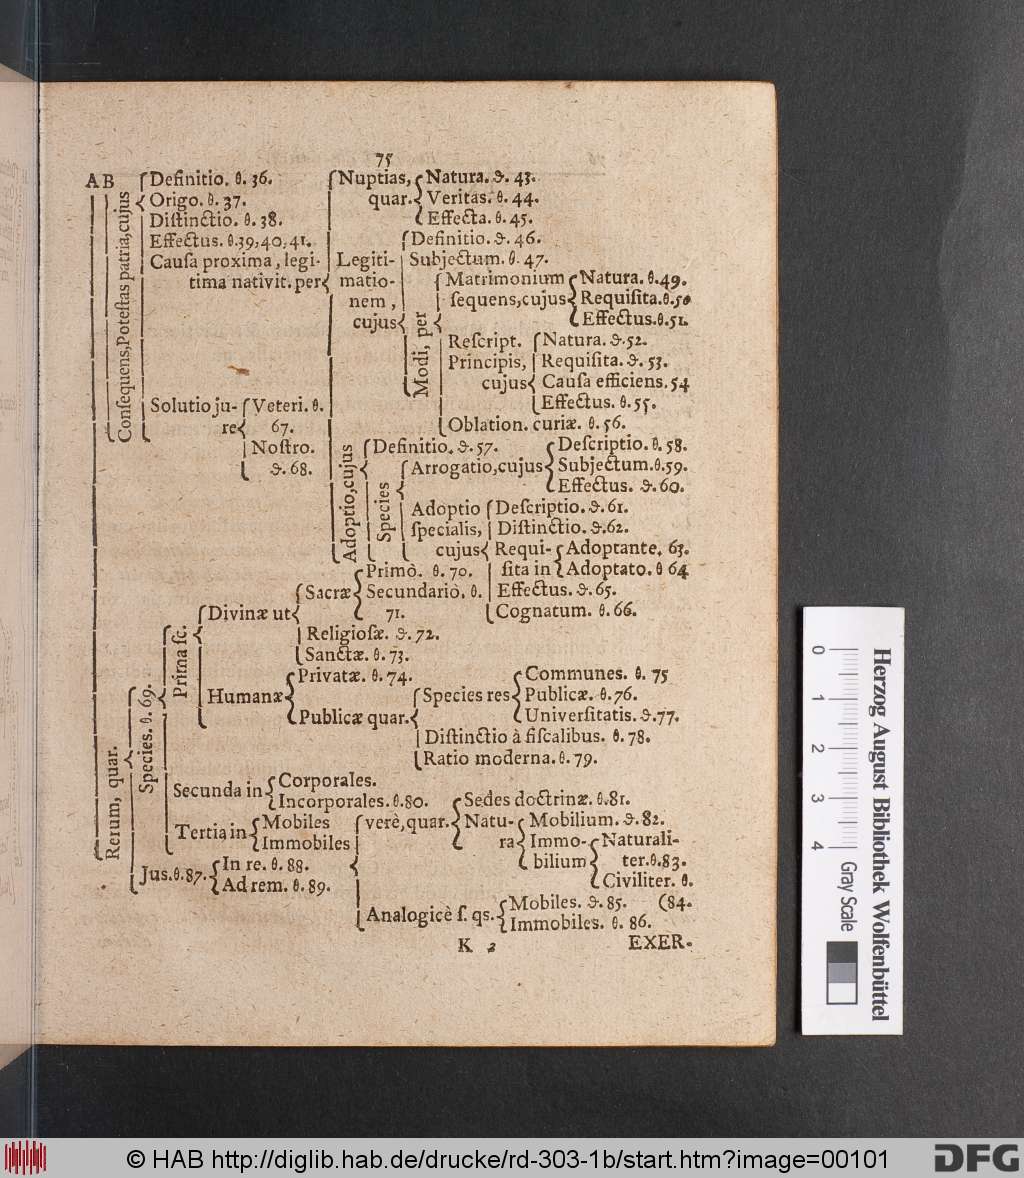 75
A B
Consequens, Potestas patria, cujus
Definitio. θ. 36.
Origo. θ. 37.
Distinctio. θ. 38.
Effectus. θ. 39, 40, 41.
Causa proxima, legi-
tima nativit. per
Nuptias,
quar.
Natura. ϑ. 43.
Veritas. θ. 44.
Effecta. θ. 45.
Legiti-
matio-
nem,
cujus
Definitio. ϑ. 46.
Subjectum. θ. 47.
Modi, per
Matrimonium
sequens, cujus
Natura. θ. 49.
Requisita. θ. 50
Effectus. θ. 51.
Rescript.
Principis,
cujus
Natura. ϑ. 52.
Requisita. ϑ. 53.
Causa efficiens. 54
Effectus. θ. 55.
Oblation. curiæ. θ. 56.
Adoptio, cujus
Definitio. ϑ. 57.
Species
Arrogatio, cujus
Descriptio. θ. 58.
Subjectum. θ. 59.
Effectus. ϑ. 60.
Adoptio
specialis,
cujus
Descriptio. ϑ. 61.
Distinctio. ϑ. 62.
Requi-
sita in
Adoptante. 63.
Adoptato. θ 64
Effectus. ϑ. 65.
Cognatum. θ. 66.
Solutio ju-
re
Veteri. θ.
67.
Nostro.
ϑ. 68.
Rerum, quar.
Species. θ. 69.
Prima sc.
Divinæ ut
Sacræ
Primò. θ. 70.
Secundariò. θ.
71.
Religiosæ. ϑ. 72.
Sanctæ. θ. 73.
Humanæ
Privatæ. θ. 74.
Publicæ quar.
Species res
Communes. θ. 75
Publicæ. θ. 76.
Universitatis. ϑ. 77.
Distinctio à fiscalibus. θ. 78.
Ratio moderna. θ. 79.
Secunda in
Corporales.
Incorporales. θ. 80.
Tertia in
Mobiles
Immobiles
verè, quar.
Sedes doctrinæ. θ. 81.
Natu-
ra
Mobilium. ϑ. 82.
Immo-
bilium
Naturali-
ter. θ. 83.
Civiliter. θ.
(84.
Analogicè s. qs.
Mobiles. ϑ. 85.
Immobiles. θ. 86.
Jus. θ. 87.
In re. θ. 88.
Ad rem. θ. 89.
K 2
EXER-
0 1 2 3 4
Gray Scale
Herzog August Bibliothek Wolfenbüttel
© HAB http://diglib.hab.de/drucke/rd-303-1b/start.htm?image=00101
DFG